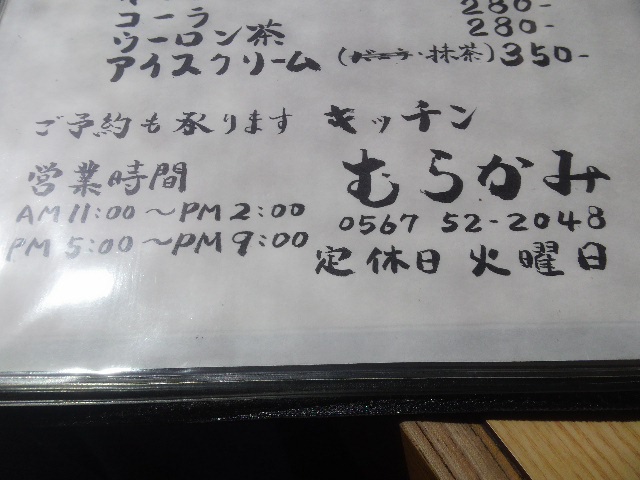 コーラ 280-
ウーロン茶 280-
アイスクリーム (バニラ・抹茶) 350-
ご予約も承ります キッチン
営業時間 むらかみ
AM 11:00～PM 2:00 0567 52-2048
PM 5:00～PM 9:00 定休日 火曜日